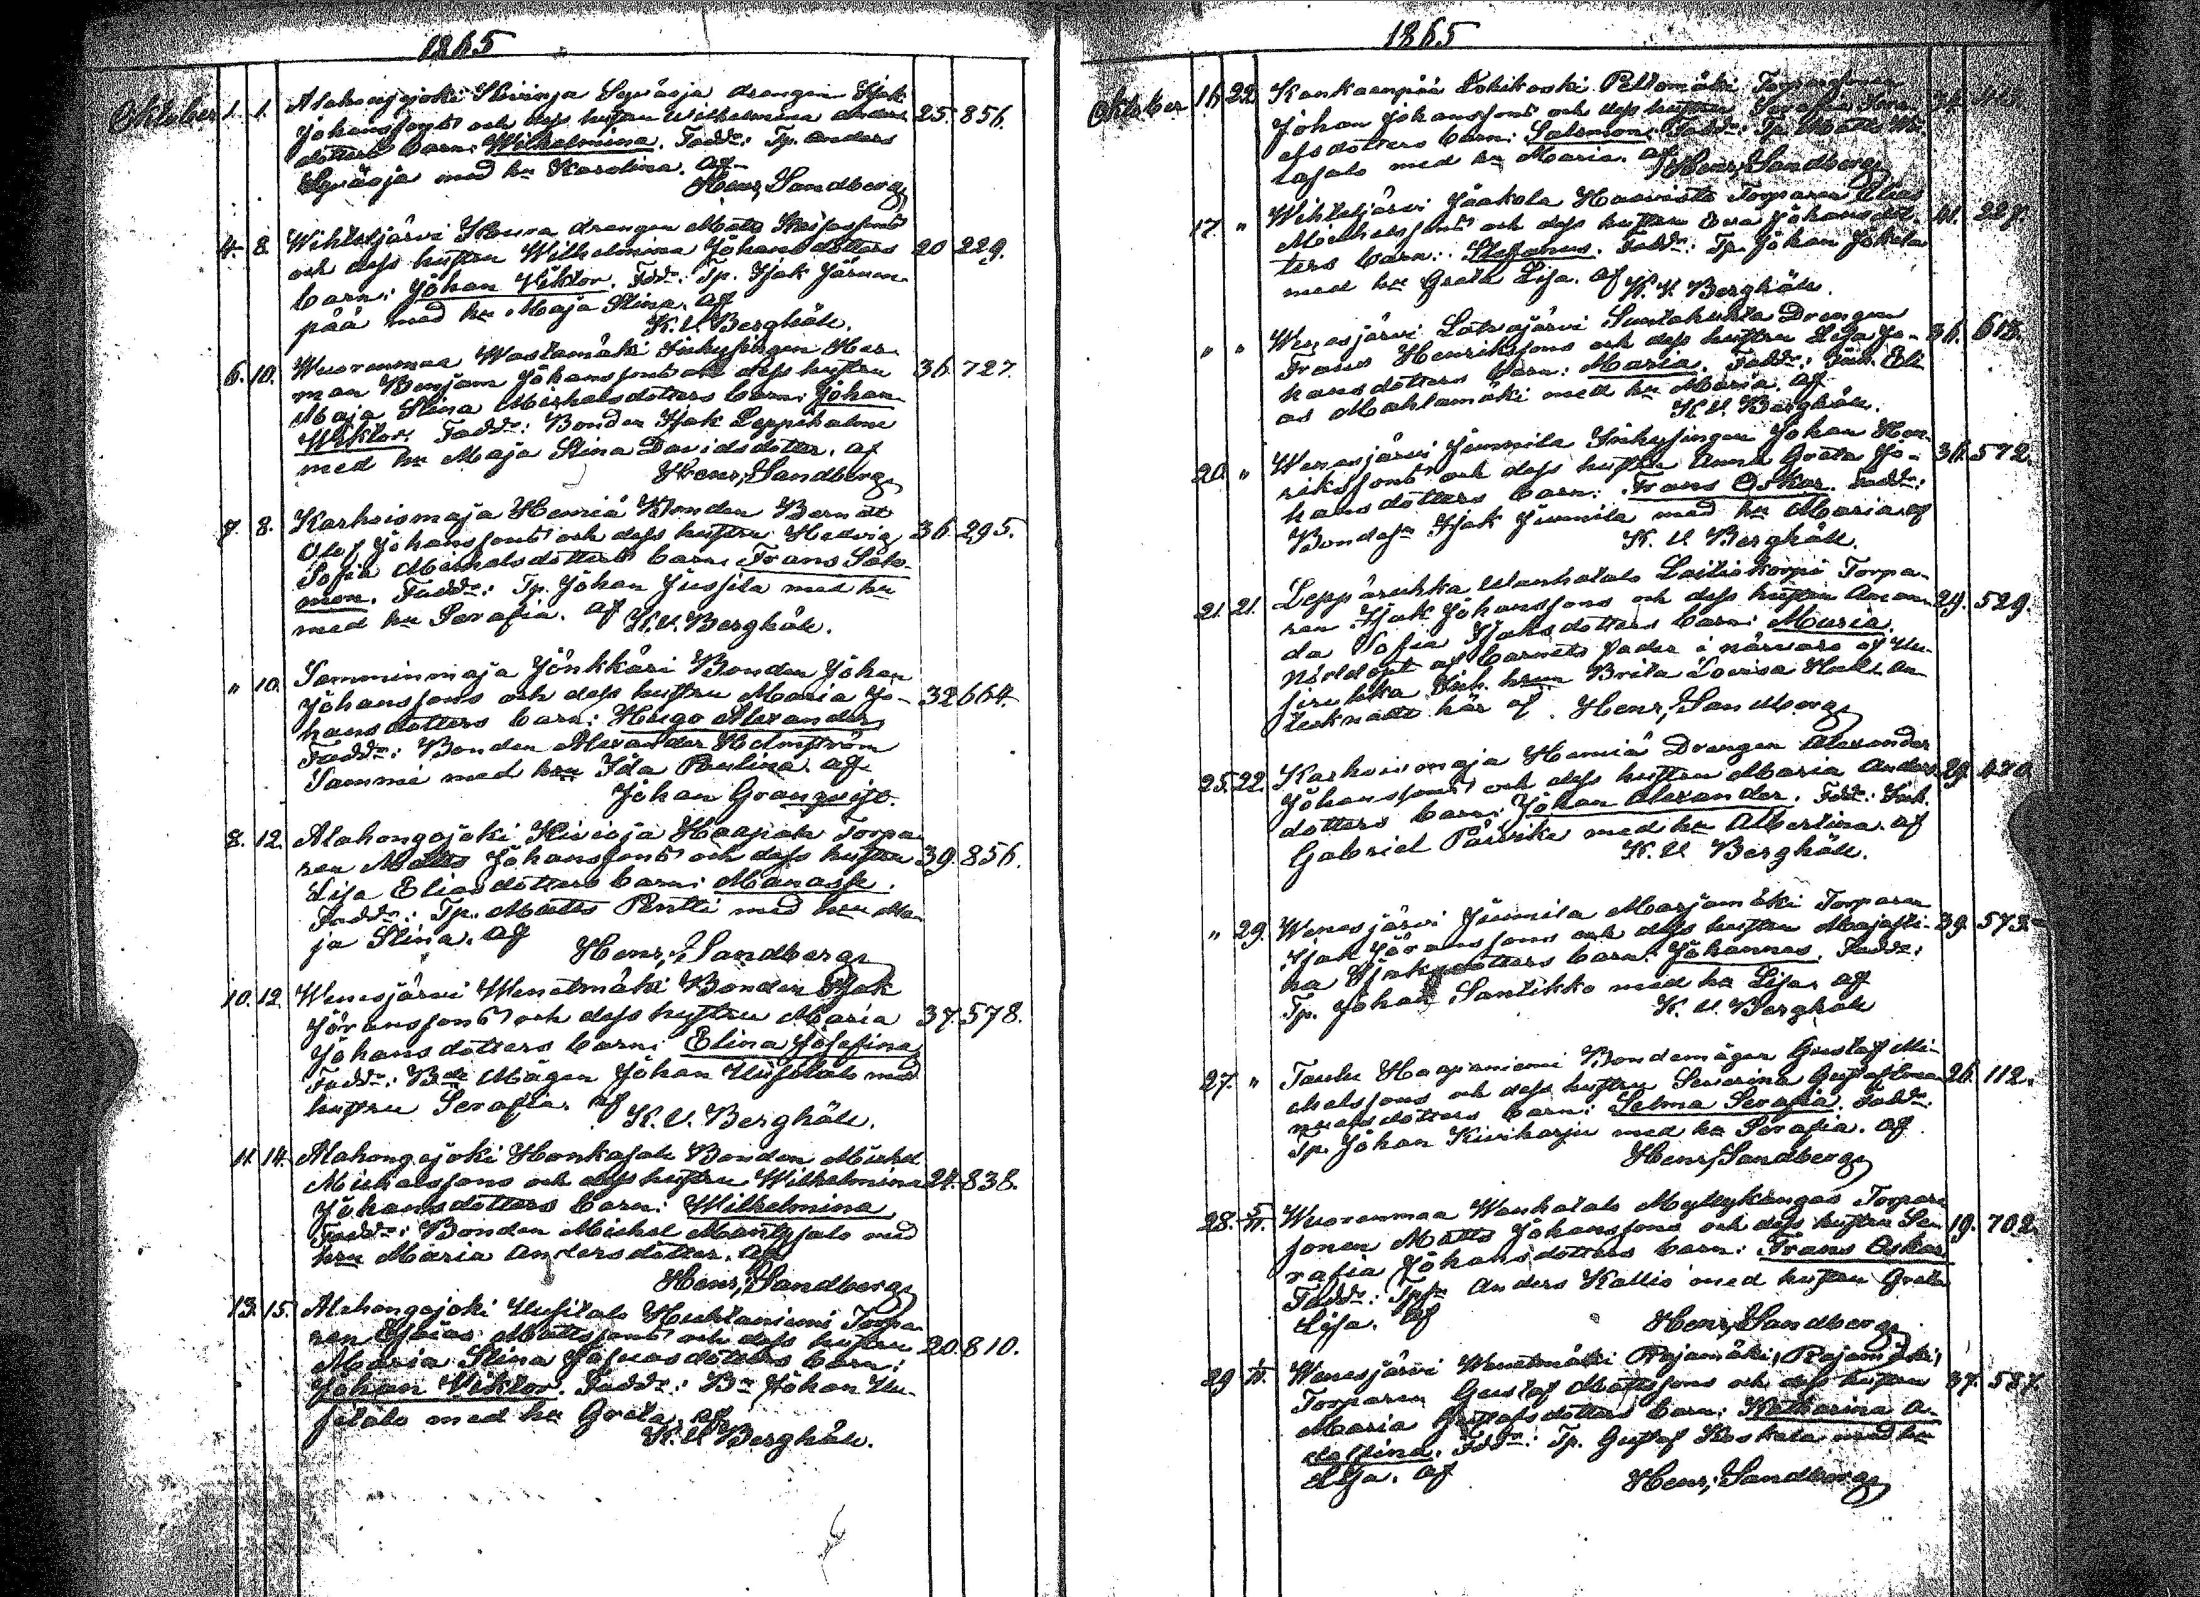 1865
Oktober 1. 1. Alahongojoki Kivioja Syväoja drengen Isak
Johanssons och dess hustru Wilhelmina Anders 25. 856.
dotters barn: Wilhelmina. Faddr: Tp. Anders
Syväoja med hu Karolina. af
Henr, Sandberg
4. 8. Wihteljärvi Knura drengen Matts
och dess hustru Wilhelmina Johansdotters 20 229.
barn: Johan Viktor. Fadr: Tp. Isak Järven-
pää med hu Maja Stina. af
K. V. Berghäll.
6. 10. Wuorenmaa Wastamäki Inhysingen Her-
man Benjam Johanssons och dess hustru 36. 727.
Maja Stina Michelsdotters barn: Johan
Wiktor. Faddr: Bonden Isak Leppihalme
med hu Maja Stina Davidsdotter. af
Henr, Sandberg
7. 8. Karhoismaja Hemiä Bonden Berndt
Olof Johanssons och dess hustru Hedvig 36. 295.
Sofia Michelsdotters barn: Frans Salo-
mon. Faddr: Tp. Johan Jussila med hu
med hu Serafia. af K. V. Berghäll.
" 10. Samminmaja Jönkkäri Bonden Johan
Johanssons och dess hustru Maria Jo- 32 664.
hansdotters barn: Hugo Alexander
Faddr: Bonden Alexander Holmström
Samme med hru Ida Paulina. af
Johan Granqvist.
8. 12. Alahongojoki Kivioja Haapak Torpa-
ren Matts Johanssons och dess hustru 39. 856.
Lisa Eliasdotters barn: Manasse.
Faddr: Tp. Matts Pentti med hru Ma-
ja Stina. af
Henr, Sandberg
10. 12. Wenesjärvi Wenetmäki Bonden Isak
Göranssons och dess hustru Maria 37. 578.
Johansdotters barn: Elina Josefina
Faddr: Bde Mågen Johan Uusitalo med
hustru Serafia. af
K. V. Berghäll.
11. 14. Alahongojoki Honkasalo Bonden Michel
Michelssons och dess hustru Wilhelmina 24. 838.
Johansdotters barn: Wilhelmina
Faddr: Bonden Michel Mäntysalo med
hru Maria Andersdotter. af
Henr, Sandberg
13. 15. Alahongojoki Uusitalo Huhtaniemi Torpa-
ren Esaias Mattssons och dess hustru 20. 810.
Maria Stina Josuasdotters barn:
Johan Viktor. Faddr: Bn Johan Uu-
sitalo med hu Greta. af
K. V. Berghäll.
1865
Oktober 16. 22. Kankaanpää Kohikoski Peltomäki
Johan Johanssons och dess hustru Serafia 34.
dotters barn: Salomon. Faddr: Tp. Matts
med hu Maria. af
Henr, Sandberg
17. " Wihteljärvi Jaakola Haavisto Torparen Elias
Michelssons och dess hustru Eva Johansdot- 21. 227.
ters barn: Stefanus. Faddr: Tp. Johan Jokela
med hu Greta Lisa. af K. V. Berghäll.
" " Wenesjärvi Latvajärvi Drengen
Frans Henrikssons och dess hustru Lisa Jo- 36. 613.
hansdotters barn: Maria. Faddr: Eli-
as Mahlamäki med hu Maria. af
K. V. Berghäll.
20. " Wenesjärvi Junnila Inhysingen Johan Hen-
rikssons och dess hustru Anna Greta Jo- 36. 572.
hansdotters barn: Frans Oskar. Faddr:
Bondesn Isak Junnila med hu Maria. af
K. V. Berghäll.
21. 21. Leppäruhka Wanhatalo Laitiskorpi Torpa-
ren Isak Johanssons och dess hustru Aman- 29. 529.
da Sofia Isaksdotters barn: Maria.
Nöddöpt af barnets fader i närvaro af
Inh. hrun Brita Lovisa An-
tecknadt här af Henr, Sandberg
25. 22. Karhoismaja Hemiä Drengen Alexander
Johanssons och dess hustru Maria Anders- 29. 420
dotters barn: Johan Alexander. Fadr: Inh.
Gabriel med hu Albertina. af
K. V. Berghäll.
" 29. Wenesjärvi Junnila Marjamäki Torparen
Isak Göranssons och dess hustru Maja Sti- 39. 573.
na Isaksdotters barn: Johannes. Faddr:
Tp. Johan Santikko med hu Lisa. af
K. V. Berghäll
27. " Taulu Haapaniemi Bondemågen Gustaf Mi-
chelssons och dess hustru Severina Gustaf Ema- 26. 112.
nuelsdotters barn: Selma Serafia. Faddr:
Tp. Johan Kiviharju med hu Serafia. af
Henr, Sandberg
28. 5/11. Wuorenmaa Wanhatalo Myllykangas Torpare
sonen Matts Johanssons och dess hustru Se- 19. 702.
rafia Johansdotters barn: Frans Oskar
Faddr: Tpsn Anders Kallio med hustru Greta
Lisa. af
Henr, Sandberg
29 Wenesjärvi Wenetmäki Rajamäki, Rajamäki,
Torparen Gustaf Mattssons och dess hustru 37. 587.
Maria Gustafsdotters barn: Katharina A-
dolfina. Fadr: Tp. Gustaf Koskela med hu
Lisa. af
Henr, Sandberg